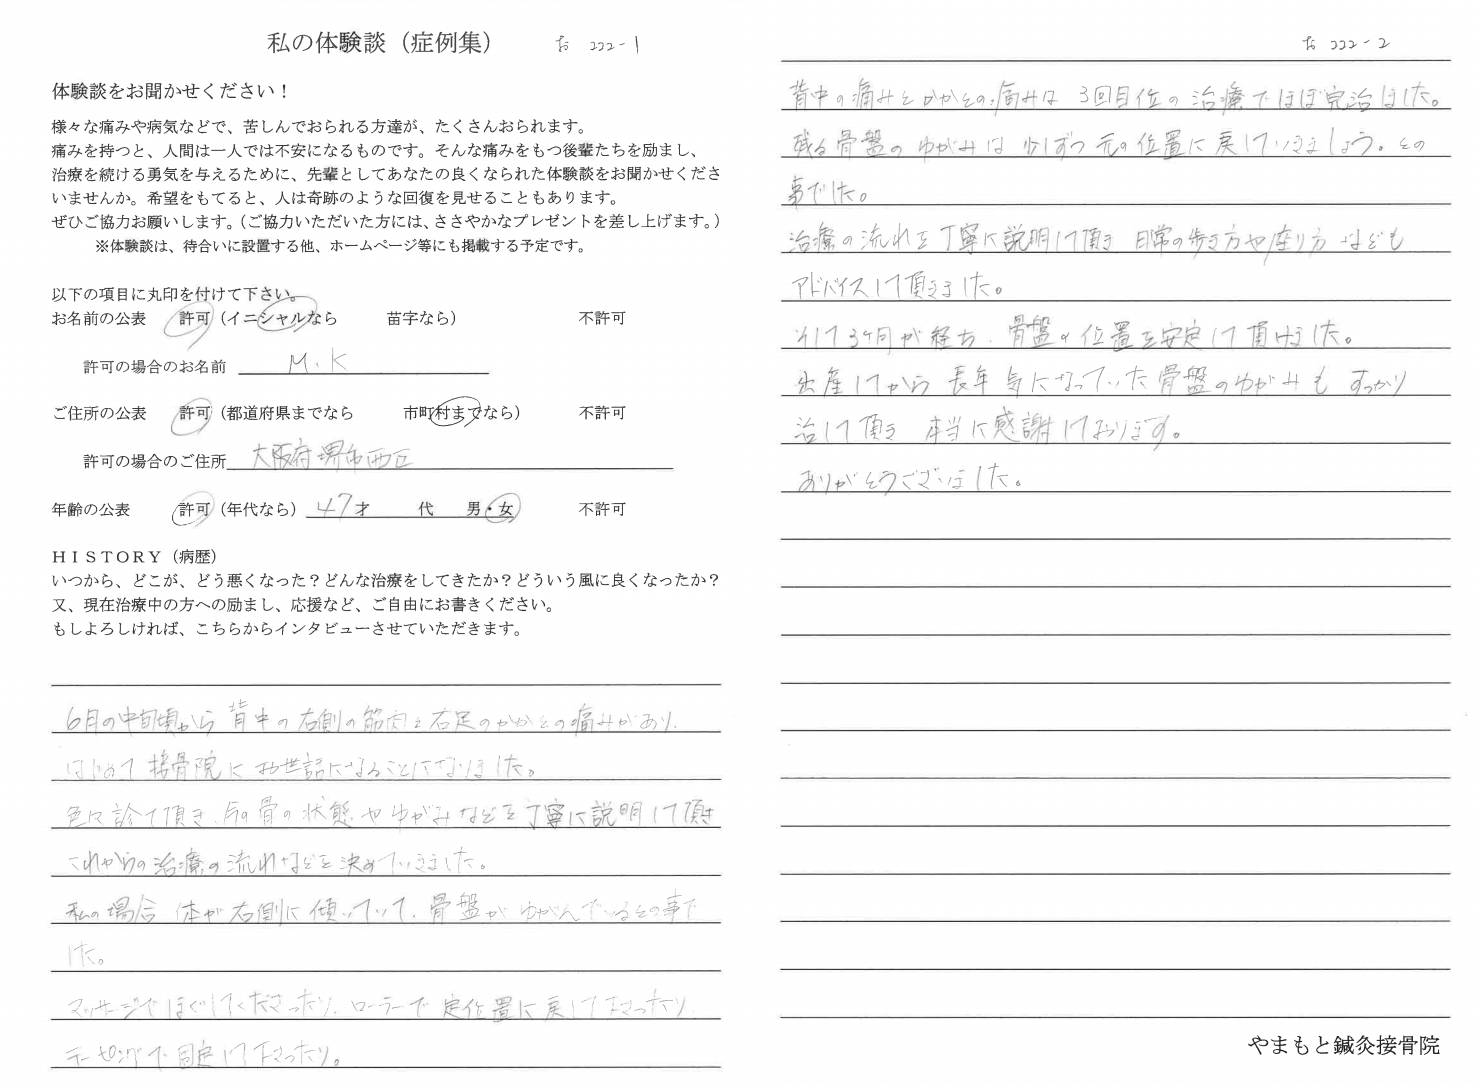 私の体験談（症例集） お 222-1
体験談をお聞かせください！
様々な痛みや病気などで、苦しんでおられる方達が、たくさんおられます。
痛みを持つと、人間は一人では不安になるものです。そんな痛みをもつ後輩たちを励まし、
治療を続ける勇気を与えるために、先輩としてあなたの良くなられた体験談をお聞かせくださ
いませんか。希望をもてると、人は奇跡のような回復を見せることもあります。
ぜひご協力お願いします。（ご協力いただいた方には、ささやかなプレゼントを差し上げます。）
※体験談は、待合いに設置する他、ホームページ等にも掲載する予定です。
以下の項目に丸印を付けて下さい。
お名前の公表 許可（イニシャルなら 苗字なら） 不許可
許可の場合のお名前 M.K
ご住所の公表 許可（都道府県までなら 市町村までなら） 不許可
許可の場合のご住所 大阪府堺市西区
年齢の公表 許可（年代なら） 47才 代 男・女 不許可
ＨＩＳＴＯＲＹ（病歴）
いつから、どこが、どう悪くなった？どんな治療をしてきたか？どういう風に良くなったか？
又、現在治療中の方への励まし、応援など、ご自由にお書きください。
もしよろしければ、こちらからインタビューさせていただきます。
6月の中旬頃から 背中の右側の筋肉と右足のかかとの痛みがあり、
はじめて接骨院にお世話になることになりました。
色々診て頂き、今の骨の状態やゆがみなどを丁寧に説明して頂き
これからの治療の流れなどを決めていきました。
私の場合 体が右側に傾いていて、骨盤がゆがんでいるとの事で
した。
マッサージでほぐしてくださったり、ローラーで定位置に戻して下さったり、
テーピングで固定して下さったり。
お 222-2
背中の痛みとかかとの痛みは 3回目位の治療でほぼ完治しました。
残る骨盤のゆがみは 少しずつ元の位置に戻していきましょう。との
事でした。
治療の流れを丁寧に説明して頂き 日常の歩き方や座り方なども
アドバイスして頂きました。
そして3ヶ月が経ち、骨盤の位置を安定して頂けました。
出産してから 長年気になっていた骨盤のゆがみも すっかり
治して頂き 本当に感謝しております。
ありがとうございました。
やまもと鍼灸接骨院